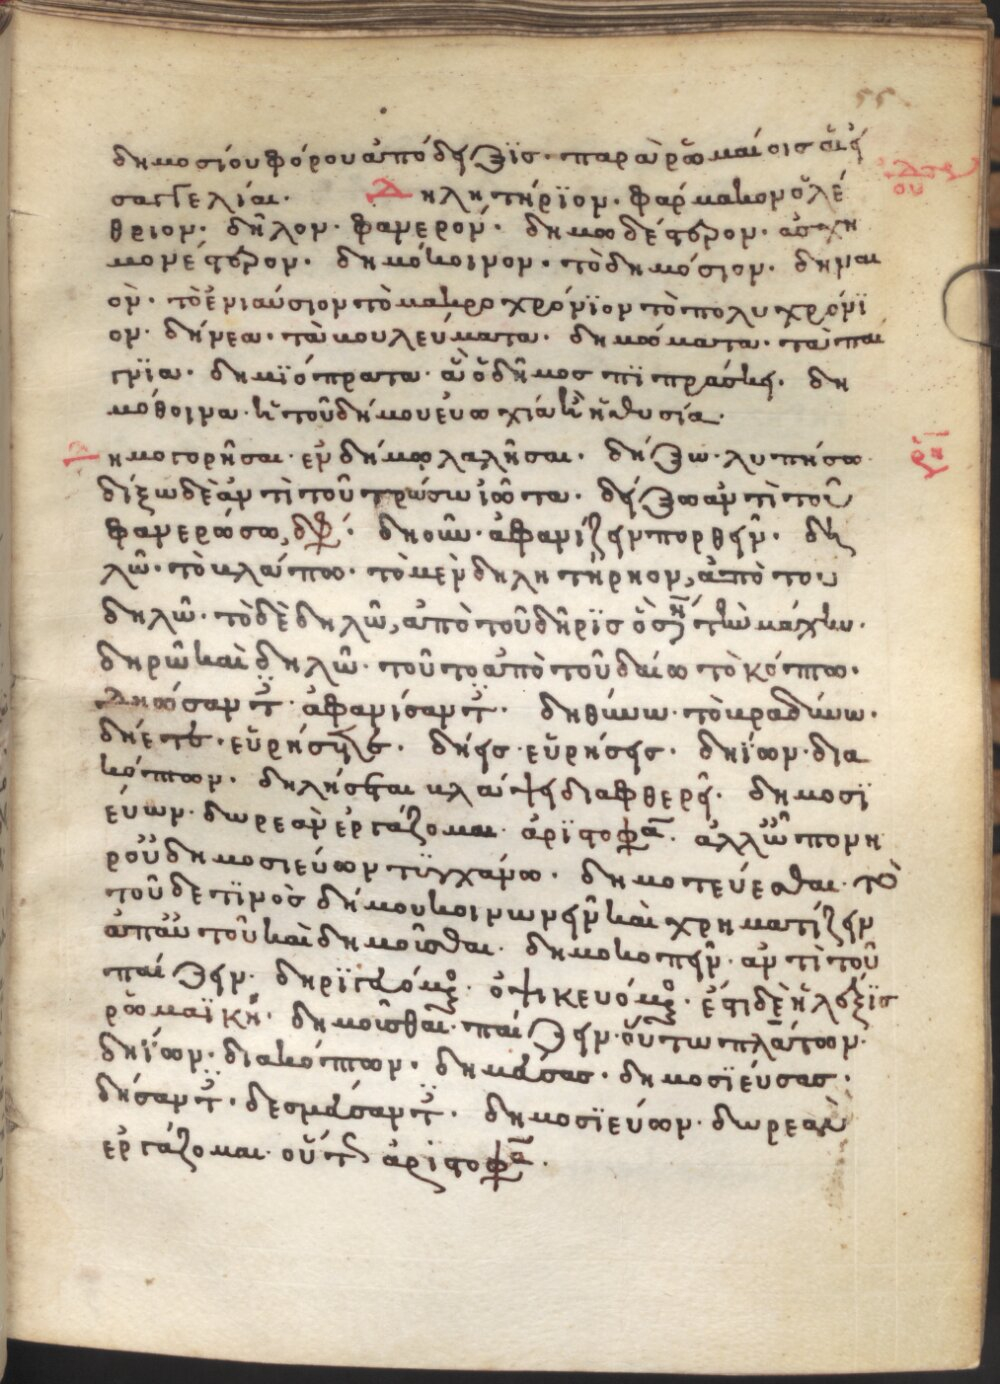 55
δημοσίου φόρου ἀπόδειξϊς· παρὰ ῥωμαίοις αἱ εἰ
σαγγελίαι. Δηλητήρϊον· φάρμακον ὀλέ
θριον· δῆλον· φανερόν· δημωδέστερον· ἀσχη
μονέστερον· δημόκοινον· τὸ δημόσιον· δηναι
ὸν· τὸ ἐνιαύσιον τὸ μακροχρόνϊον τὸ πολυχρόνϊ
ον· δήνεα· τὰ κουλεύματα· δημώματα· τὰ παί
γνϊα· δημϊόπρατα· ἃ ὁ δῆμος πϊπράσκει· δη
μόθοινα· ἡ τοῦ δήμου εὐωχία καὶ ἡ θυσία·
Δημογορῆσαι· ἐν δήμῳ λαλῆσαι· δήξω· λυπήσω
δίξω δὲ ἀντὶ τοῦ τρώσω ἰῶτα· δείξω ἀντὶ τοῦ
φανερώσω, δφ· δηοῦν· ἀφανίζειν πορθεῖν· δη
λῶ· τὸ κλάπτω· τὸ μὲν δηλητήρηον, ἀπὸ του
δηλῶ· τὸ δὲ δηλῶ, ἀπὸ τοῦ δῆρϊς ὃ σημαίνει τὴν μάχην·
δηρῶ καὶ δηλῶ· τοῦτο ἀπὸ τοῦ δαίω τὸ κόπτω·
Δηώσαντες· ἀφανίσαντες· δηθύνω· τὸ κραδύνω·
δήετε· εὑρήσετε· δήεις· εὑρήσεις· δηΐων· δια
κόπτων· δηλήσεται κλάψει διαφθερεῖ· δημοσϊ
εύων· δωρεὰν ἐργάζομαι· ἀρϊστοφα· ἀλλ' ὦ πονη
ροῦ δημοσιεύων τϋγχάνω· δημοτεύεσθαι· τὸ
τοῦδε τϊνὸς δήμου κοινωνεῖν καὶ χρηματίζειν
ἀπ' αὐτοῦ καὶ δημοῦσθαι· δημοκοπεῖν· ἀντὶ τοῦ
παίξειν· δηρϊγευόμενος· ὀψικευόμενος· ἔστι δὲ ἡ λέξϊς
ῥωμαϊκή· δημοῦσθαι· παίξειν· οὕτω πλάτων·
δηΐων· διακόπτων· δημεύσας· δημοσϊεύσας·
δήσαντες· δεσμεύσαντες· δημοσϊεύων· δωρεὰν
ἐργάζομαι· οὕτως ἀρϊστοφα·